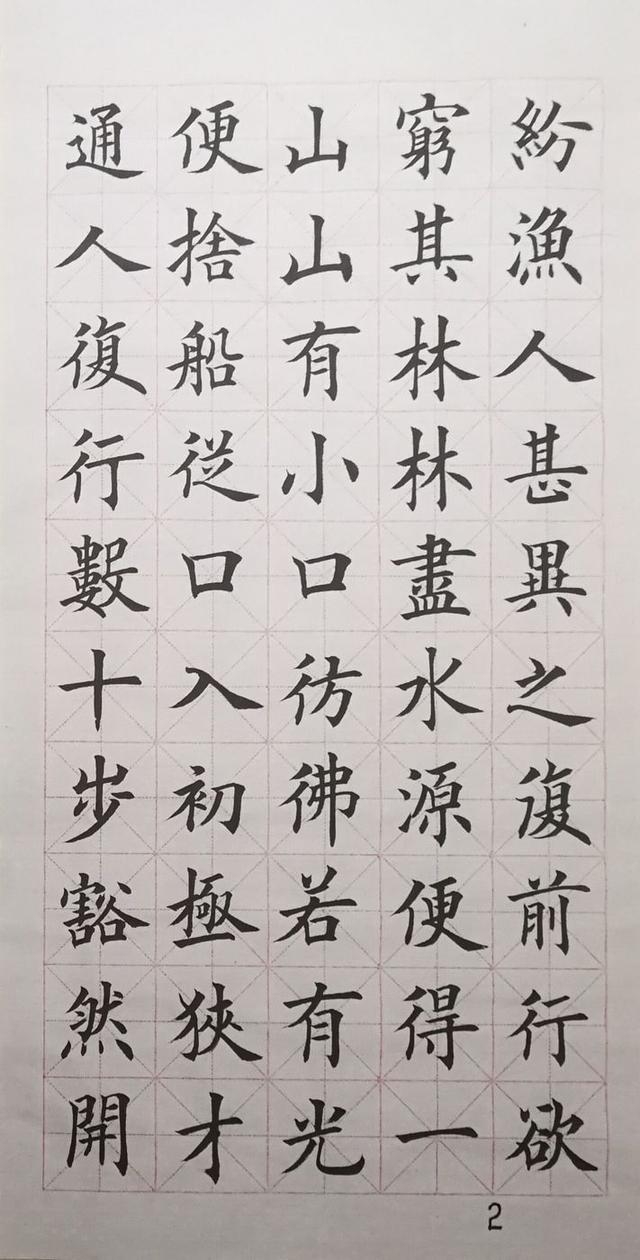 紛漁人甚異之復前行欲
窮其林林盡水源便得一
山山有小口彷彿若有光
便捨船從口入初極狹才
通人復行數十步豁然開
2